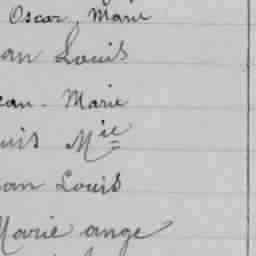 Oscar, Marie
an Louis
ean - Marie
uis Mie
ean Louis
Marie ange